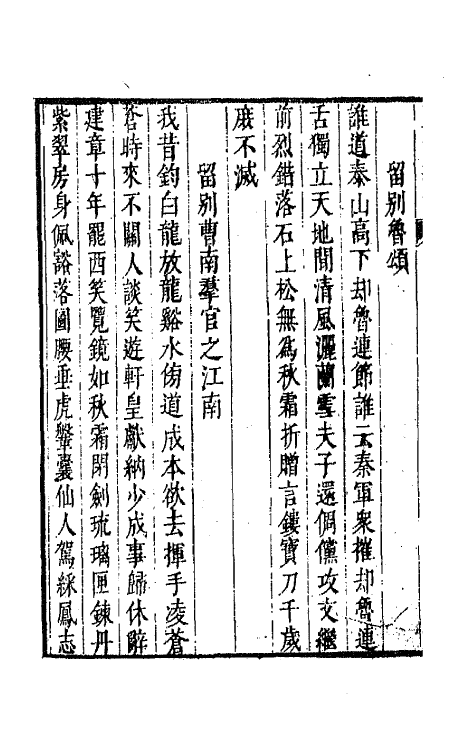 留别魯頌
誰道泰山高下却魯連節誰云秦軍衆摧却魯連
舌獨立天地間清風灑蘭雪夫子還倜儻攻文繼
前烈錯落石上松無為秋霜折贈言鏤寶刀千歲
庶不滅
留别曹南羣官之江南
我昔釣白龍放龍谿水傍道成本欲去揮手凌蒼
蒼時來不關人談笑遊軒皇獻納少成事歸休辭
建章十年罷西笑覽鏡如秋霜閉劍琉璃匣鍊丹
紫翠房身佩豁落圖腰垂虎鞶囊仙人駕綵鳳志